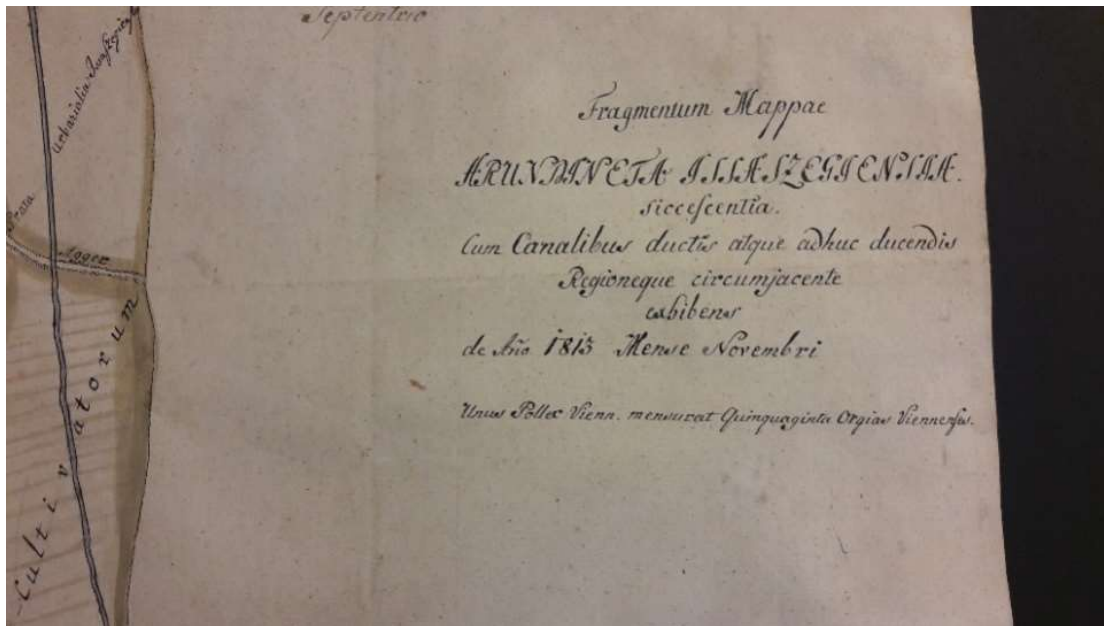 Septentrio
Urbarialia
Prata
Agger
Cultivatorum
Fragmentum Mappae
ARUNDINETA ISSASZEGIENSIA.
siccescentia.
Cum Canalibus ductis atque adhuc ducendis
Regioneque circumjacente
exhibens
de Año 1813 Mense Novembri
Unus Pollex Vienn. mensurat Quinquaginta Orgias Viennenses.